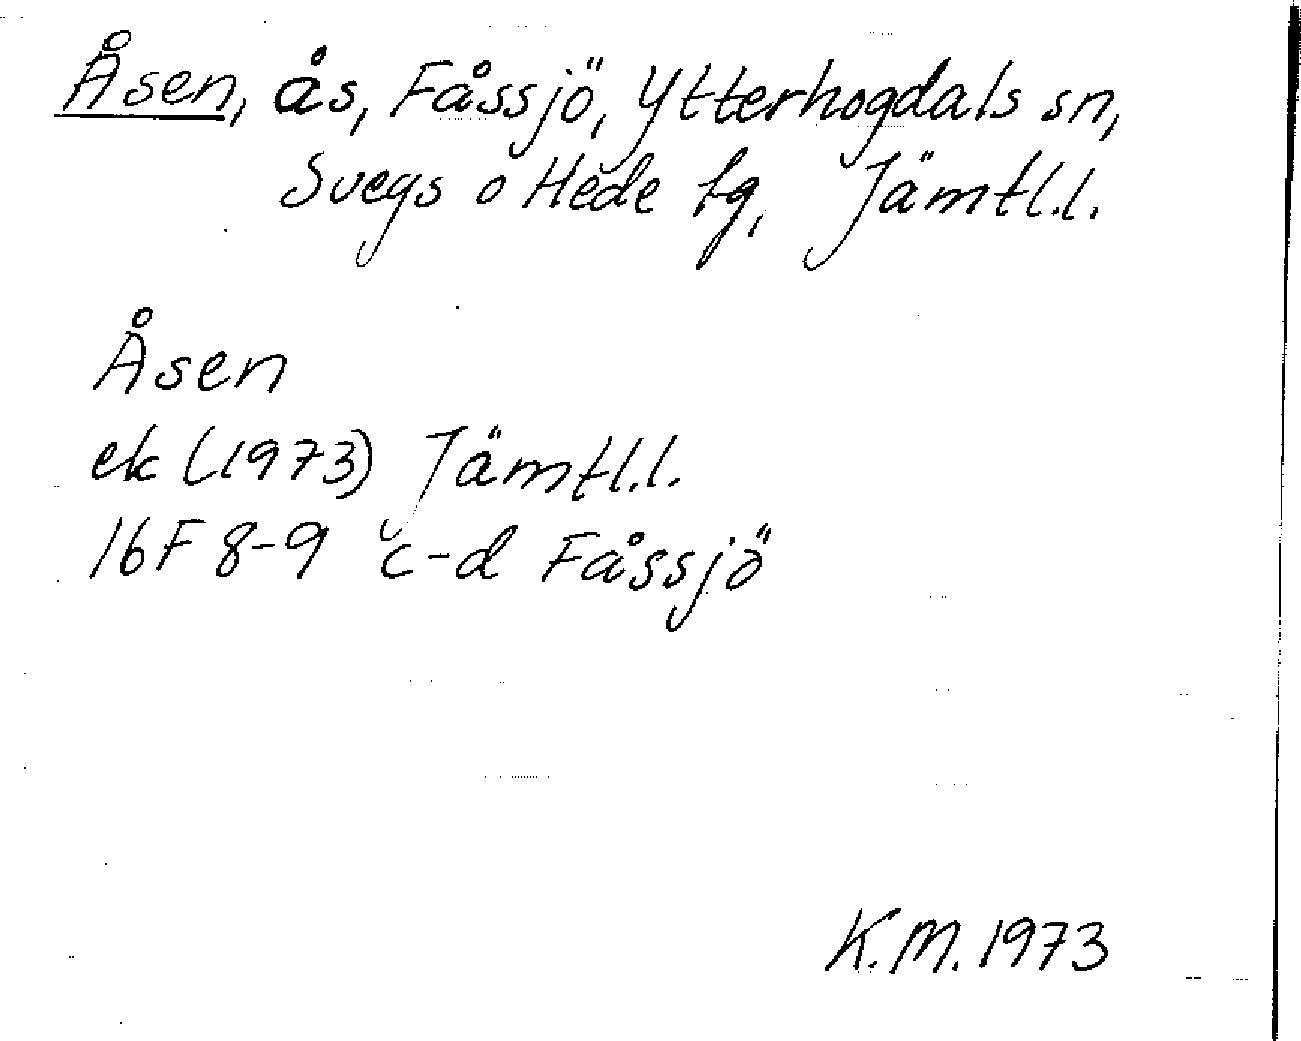 Åsen, ås, Fåssjö, Ytterhogdals sn,
Svegs o Hede tg, Jämtl.l.
Åsen
ek (1973) Jämtl.l.
16F 8-9 c-d Fåssjö
K.M. 1973